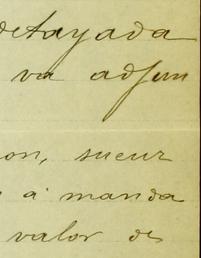 detayada
va adjun
on, sucur
á manda
valor de